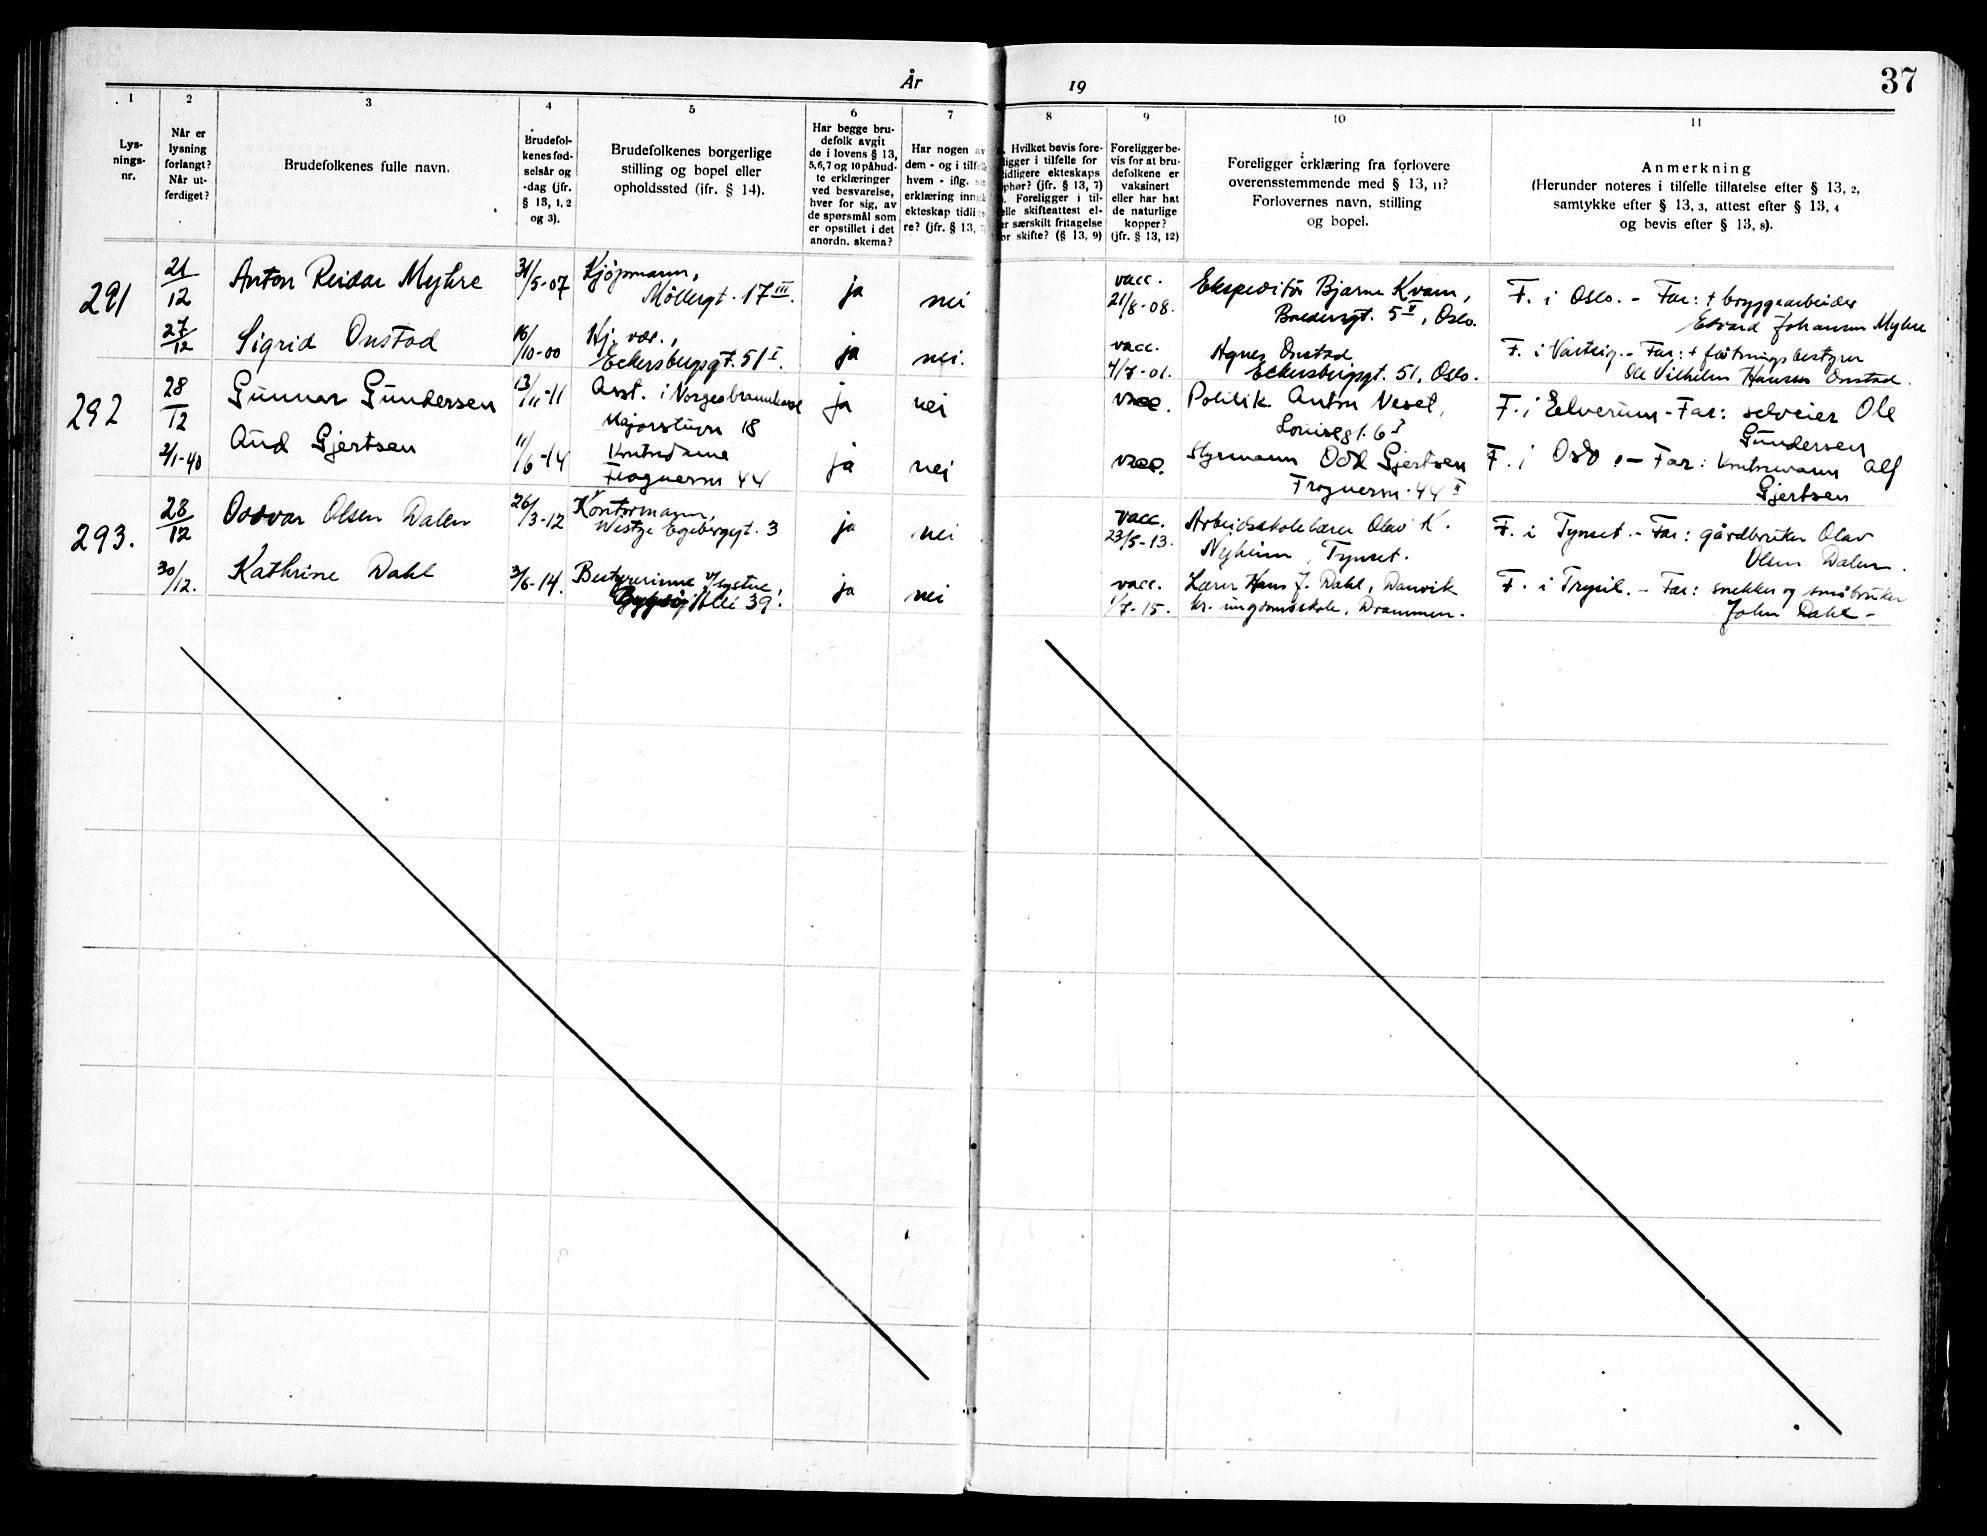 År 19
37
1
2
3
4
5
6
7
8
9
10
11
Lys-
nings-
nr.
Når er
lysning
forlangt?
Når ut-
ferdiget?
Brudefolkenes fulle navn.
Brudefol-
kenes fød-
selsår og
-dag (jfr.
§ 13, 1, 2
og 3).
Brudefolkenes borgerlige
stilling og bopel eller
opholdssted (ifr. § 14).
Har begge bru-
defolk avgit
de i lovens § 13,
5,6,7 og 10 påbud-
te erklæringer
ved besvarelse,
hver for sig, av
de spørsmål som
er opstillet i det
anordn. skema?
Har nogen av
dem - og i tilfelle
hvem - iflg.
erklæring inng
ekteskap tidlige
re? (jfr. § 13,
Hvilket bevis fore-
ligger i tilfelle for
tidligere ekteskaps
ophør? (jfr. § 13, 7)
Foreligger i til-
elle skifteattest el-
er særskilt fritagelse
or skifte? (§ 13, 9)
Foreligger be-
vis for at bru-
defolkene er
vaksinert
eller har hat
de naturlige
kopper?
(jfr. § 13, 12)
Foreligger erklæring fra forlovere
overensstemmende med § 13, 11?
Forlovernes navn, stilling
og bopel.
Anmerkning
(Herunder noteres i tilfelle tillatelse efter § 13, 2,
samtykke efter § 13, 3, attest efter § 13, 4
og bevis efter § 13, 8).
291
21/12
Anton Reidar Myhre
31/5-07
Kjøpmann,
Møllergt. 17 III.
ja
nei
vacc.
21/8-08.
Ekspeditør Bjarne Kvam,
Baldersgt. 5 II, Oslo.
F. i Oslo. - Far: + bryggearbeider
Edvard Johansen Myhre
27/12
Sigrid Onstad
16/10-00
Hj. vær.,
Eckersbergsgt. 51 I.
ja
nei.
vacc.
4/7-01.
Agnes Onstad
Eckersbergsgt. 51, Oslo.
F. i Varteig. - Far: +
Ole Vilhelm Hansen Onstad.
292
28/12
Gunnar Gundersen
13/11-11
Asst. i Norges brannkasse
Majorstuvn 18
ja
nei
vacc.
Politik. Anton Veset,
Louisesgt. 6 I
F. i Elverum - Far: selveier Ole
Gundersen
2/1-40
Aud Gjertsen
11/6-14
Kontordame
Frognervn 44
ja
nei
vacc.
Styrmann Odd Gjertsen
Frognervn. 44 II
F. i Oslo. - Far: Kontormann Alf
Gjertsen
293.
28/12
Oddvar Olsen Dalen
26/3-12
Kontormann,
Westye Egebergsgt. 3
ja
nei
vacc.
23/5-13.
Arbeidsskolelærer Olav K.
Nyheim, Tynset.
F. i Tynset. - Far: gårdbruker Olav
Olsen Dalen.
30/12.
Kathrine Dahl
3/6-14.
Bestyrerinne v/systue,
Bygdøy Allé 39.
ja
nei
vacc.
1/7-15.
Lærer Hans J. Dahl, Danvik
kr. ungdomsskole, Drammen.
F. i Trysil. - Far: snekker og småbruker
John Dahl -